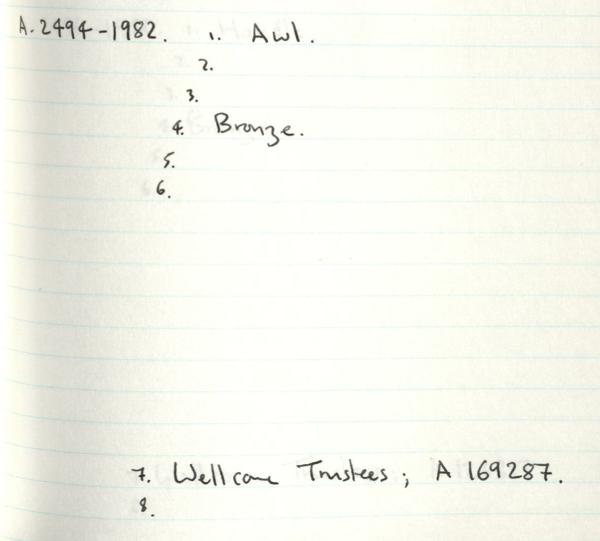 A.2494-1982. 1. Awl.
2.
3.
4. Bronze.
5.
6.
7. Wellcome Trustees; A 169287.
8.